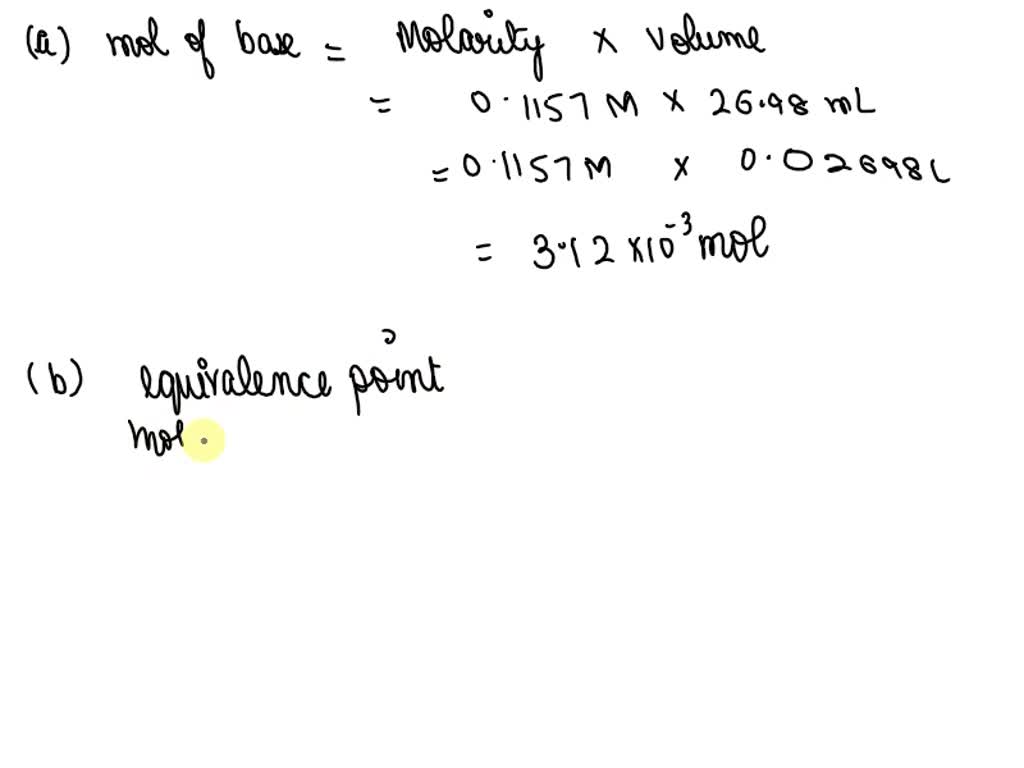 (a) mol of base = Molarity × volume
= 0.1157 M × 26.98 mL
= 0.1157 M × 0.02698 L
= 3.12 × 10⁻³ mol
(b) equivalence point
mol